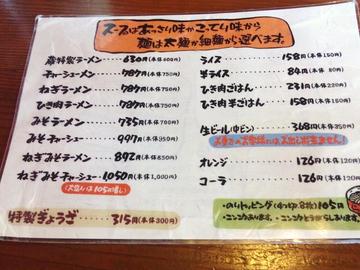 スープはあっさり味かこってり味から
麺は太麺か細麺から選べます。
特製ラーメン・・・630円(本体600円)
チャーシューメン・・・787円(本体750円)
ねぎラーメン・・・787円(本体750円)
ひき肉ラーメン・・・787円(本体750円)
みそラーメン・・・735円(本体700円)
みそチャーシュー・・・997円(本体950円)
ねぎみそラーメン・・・892円(本体850円)
ねぎみそチャーシュー・・・1050円(本体1,000円)
(大盛りは105円増し)
特製ぎょうざ・・・315円(本体300円)
ライス・・・158円(本体150円)
半ライス・・・84円(本体80円)
ひき肉ごはん・・・231円(本体220円)
ひき肉半ごはん・・・158円(本体150円)
生ビール(中ビン)・・・368円(本体350円)
お車のお客様にはお出し出来ません!
オレンジ・・・126円(本体120円)
コーラ・・・126円(本体120円)
・のりトッピング(4つ切8枚)105円
・ニンニクあります。・ニンニクとうがらしもあります。